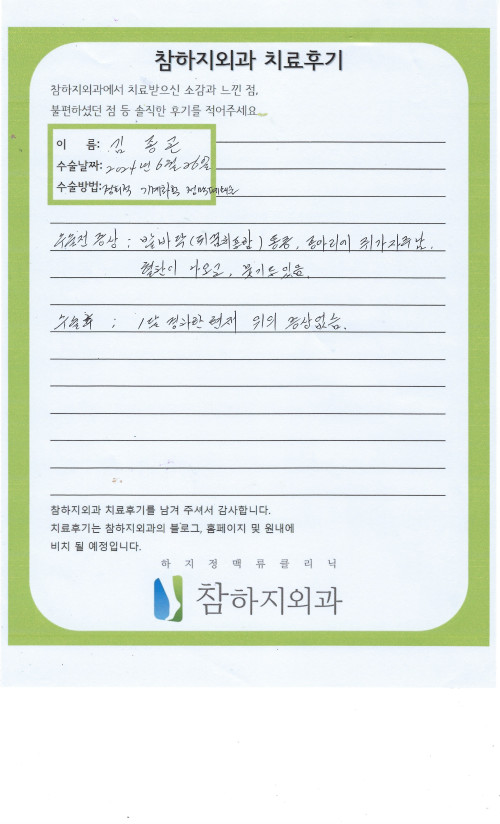 참하지외과 치료후기
참하지외과에서 치료받으신 소감과 느낀 점,
불편하셨던 점 등 솔직한 후기를 적어주세요
이 름: 김종곤
수술날짜: 2024년 6월 26일
수술방법: 정터적 기계화학 정맥폐쇄술
수술전 증상 : 발바닥(뒤꿈치포함) 통증, 종아리에 쥐가자주남.
혈관이 나오고, 붓기도있음.
수술후 : 1달 경과한 현재 위의 증상없음.
참하지외과 치료후기를 남겨 주셔서 감사합니다.
치료후기는 참하지외과의 블로그, 홈페이지 및 원내에
비치 될 예정입니다.
하지정맥류클리닉
참하지외과